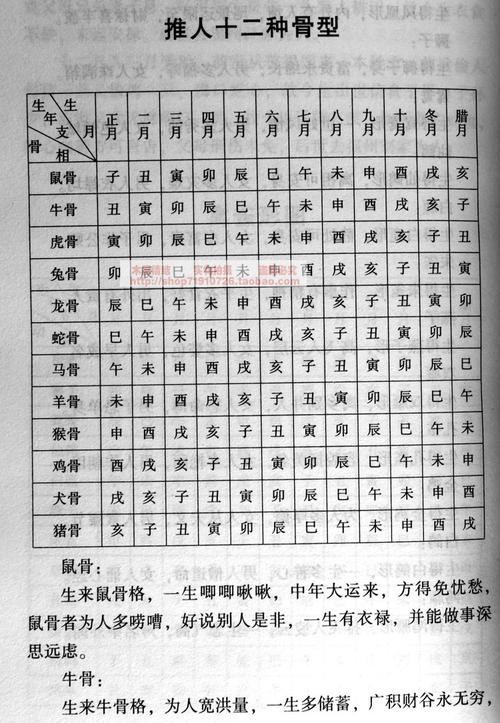 推人十二种骨型
生 生
年 支 月
骨 相
正月 二月 三月 四月 五月 六月 七月 八月 九月 十月 冬月 腊月
鼠骨 子 丑 寅 卯 辰 巳 午 未 申 酉 戌 亥
牛骨 丑 寅 卯 辰 巳 午 未 申 酉 戌 亥 子
虎骨 寅 卯 辰 巳 午 未 申 酉 戌 亥 子 丑
兔骨 卯 辰 巳 午 未 申 酉 戌 亥 子 丑 寅
http://shop71910726.taobao.com
龙骨 辰 巳 午 未 申 酉 戌 亥 子 丑 寅 卯
蛇骨 巳 午 未 申 酉 戌 亥 子 丑 寅 卯 辰
马骨 午 未 申 酉 戌 亥 子 丑 寅 卯 辰 巳
羊骨 未 申 酉 戌 亥 子 丑 寅 卯 辰 巳 午
猴骨 申 酉 戌 亥 子 丑 寅 卯 辰 巳 午 未
鸡骨 酉 戌 亥 子 丑 寅 卯 辰 巳 午 未 申
犬骨 戌 亥 子 丑 寅 卯 辰 巳 午 未 申 酉
猪骨 亥 子 丑 寅 卯 辰 巳 午 未 申 酉 戌
鼠骨：
生来鼠骨格，一生唧唧啾啾，中年大运来，方得免忧愁，
鼠骨者为人多唠嘈，好说别人是非，一生有衣禄，并能做事深
思远虑。
牛骨：
生来牛骨格，为人宽洪量，一生多储蓄，广积财谷永无穷，